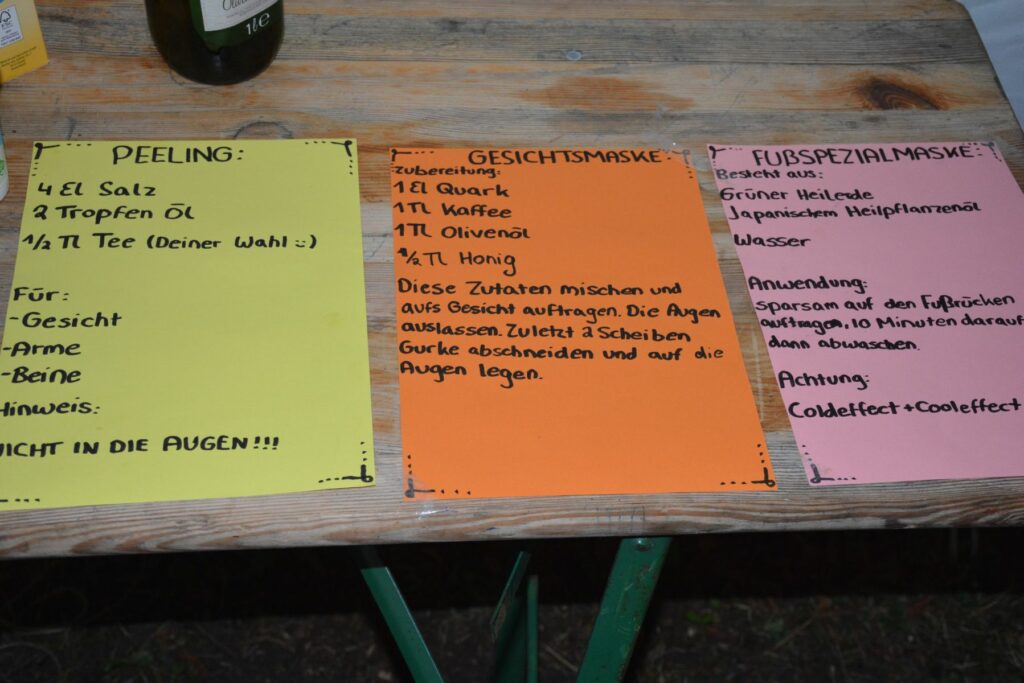 1l e
FSC
PEELING:
4 El Salz
2 Tropfen Öl
1/2 Tl Tee (Deiner Wahl :))
Für:
-Gesicht
-Arme
-Beine
Hinweis:
NICHT IN DIE AUGEN!!!
GESICHTSMASKE:
Zubereitung:
1 El Quark
1 Tl Kaffee
1 Tl Olivenöl
1/2 Tl Honig
Diese Zutaten mischen und
aufs Gesicht auftragen. Die Augen
auslassen. Zuletzt 2 Scheiben
Gurke abschneiden und auf die
Augen legen.
FUßSPEZIALMASKE:
Besteht aus:
Grüner Heilerde
Japanischem Heilpflanzenöl
Wasser
Anwendung:
sparsam auf den Fußrücken
auftragen, 10 Minuten darauf
dann abwaschen.
Achtung:
Coldeffect + Cooleffect